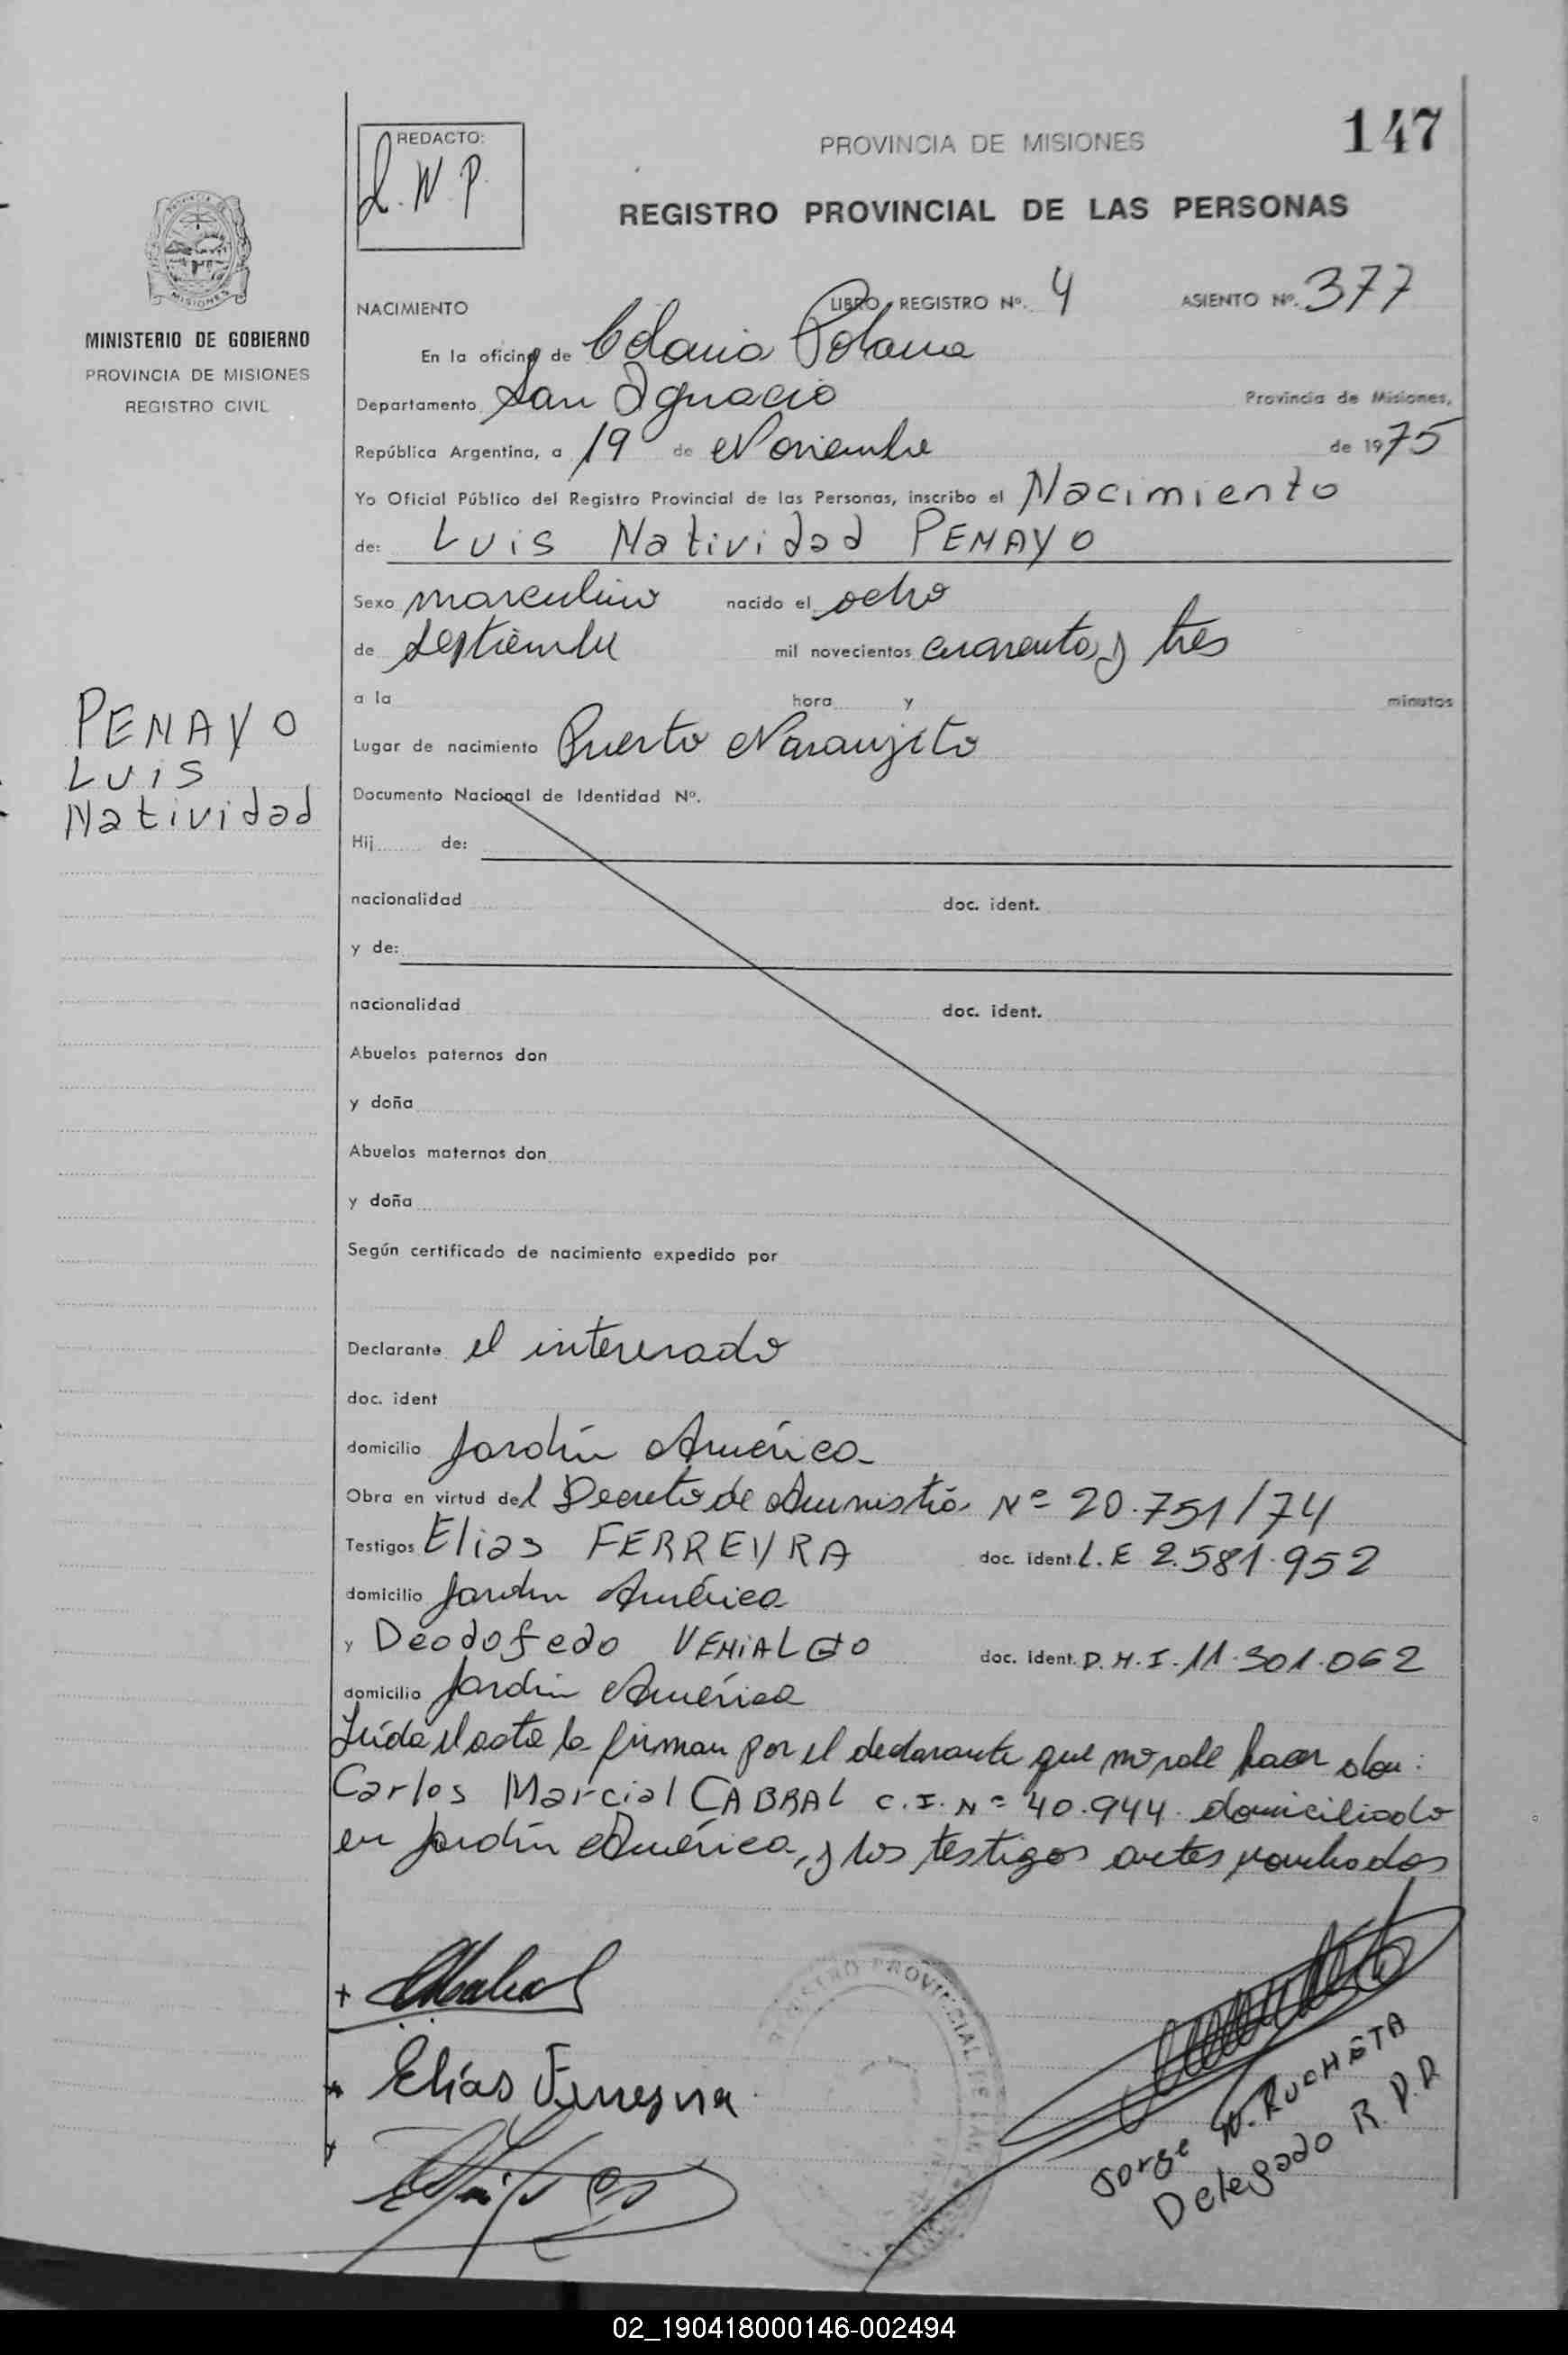 147
REDACTO:
L.W.P.
PROVINCIA DE MISIONES
REGISTRO PROVINCIAL DE LAS PERSONAS
MISIONES
MINISTERIO DE GOBIERNO
PROVINCIA DE MISIONES
REGISTRO CIVIL
NACIMIENTO LIBRO, REGISTRO Nº. 4 ASIENTO Nº. 377
En la oficina de Colonia Polana
Departamento San Ignacio Provincia de Misiones,
República Argentina, a 19 de Noviembre de 1975
Yo Oficial Público del Registro Provincial de las Personas, inscribo el Nacimiento
de: Luis Natividad PENAYO
Sexo masculino nacido el ocho
de septiembre mil novecientos cuarenta y tres
a la hora y minutos
PENAYO
Luis
Natividad
Lugar de nacimiento Puerto Naranjito
Documento Nacional de Identidad Nº.
Hij de:
nacionalidad doc. ident.
y de:
nacionalidad doc. ident.
Abuelos paternos don
y doña
Abuelos maternos don
y doña
Según certificado de nacimiento expedido por
Declarante el interesado
doc. ident
domicilio Jardín América
Obra en virtud del Decreto de Amnistía Nº 20.751/74
Testigos Elias FERREYRA doc. ident. L.E 2.581.952
domicilio Jardin América
y Deodofedo VENIALGO doc. ident. D.N.I. 11.301.062
domicilio Jardin América
Leída el acta la firman por el declarante que no sabe hacer don:
Carlos Marcial CABRAL C.I. Nº 40.944 domiciliado
en Jardín América, y los testigos antes nombrados
Elías Ferreyra
REGISTRO PROVINCIAL DE LAS
Jorge W. RUCHETA
Delegado R.P.P
02_190418000146-002494